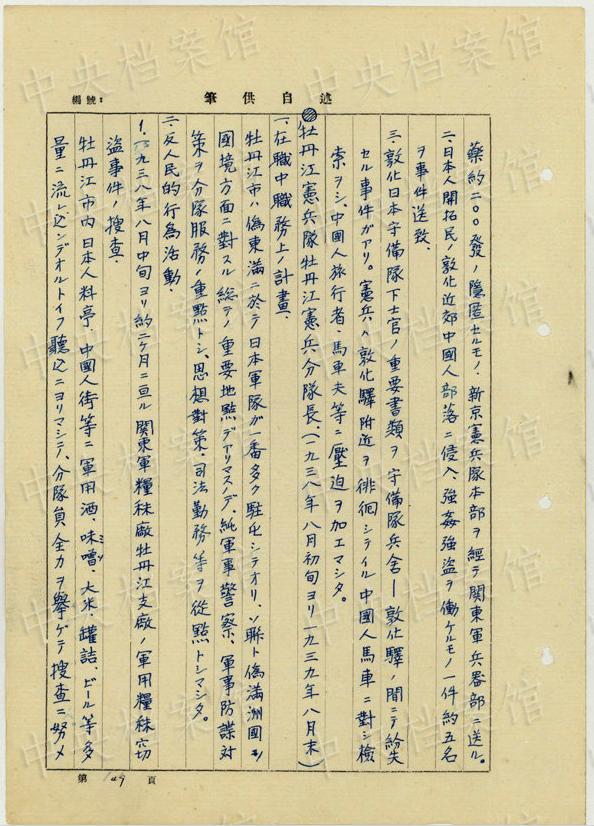 述自供筆
編號：
藥約二〇〇發ノ隱匿セルモノ、新京憲兵隊本部ヲ經テ關東軍兵器部ニ送ル。
二、日本人開拓民ノ敦化近郊中國人部落ニ侵入、強姦強盜ヲ働ケルモノ一件約五名
ヲ事件送致、
三、敦化日本守備隊下士官ノ重要書類ヲ守備隊兵舎—敦化驛ノ間ニテ紛失
セル事件ガアリ。憲兵ハ敦化驛附近ヲ徘徊シテイル中國人馬車ニ對シ檢
索ヲシ、中國人旅行者、馬車夫等ニ壓迫ヲ加エマシタ。
牡丹江憲兵隊牡丹江憲兵分隊長、(一九三八年八月初旬ヨリ一九三九年八月末)
一、在職中職務上ノ計畫、
牡丹江市ハ偽東滿ニ於テ日本軍隊ガ一番多ク駐屯シテオリ、ソ聯ト偽滿洲國
國境方面ニ對スル総テノ重要地點デアリマスノデ、純軍事警察、軍事防諜対
策ヲ分隊服務ノ重點トシ、思想對策、司法勤務等ヲ從點トシマシタ。
二、反人民的行為活動、
1.一九三八年八月中旬ヨリ約二ケ月ニ亘ル関東軍糧秣廠牡丹江支廠ノ軍用糧秣窃
盜事件ノ搜查、
牡丹江市内日本人料亭、中國人街等ニ軍用酒、味噌、大米、罐詰、ビール等多
量ニ流レ込ンデオルトイフ聽込ニヨリマシテ、分隊員全力ヲ擧ゲテ搜査ニ努メ
第 頁
中央档案馆